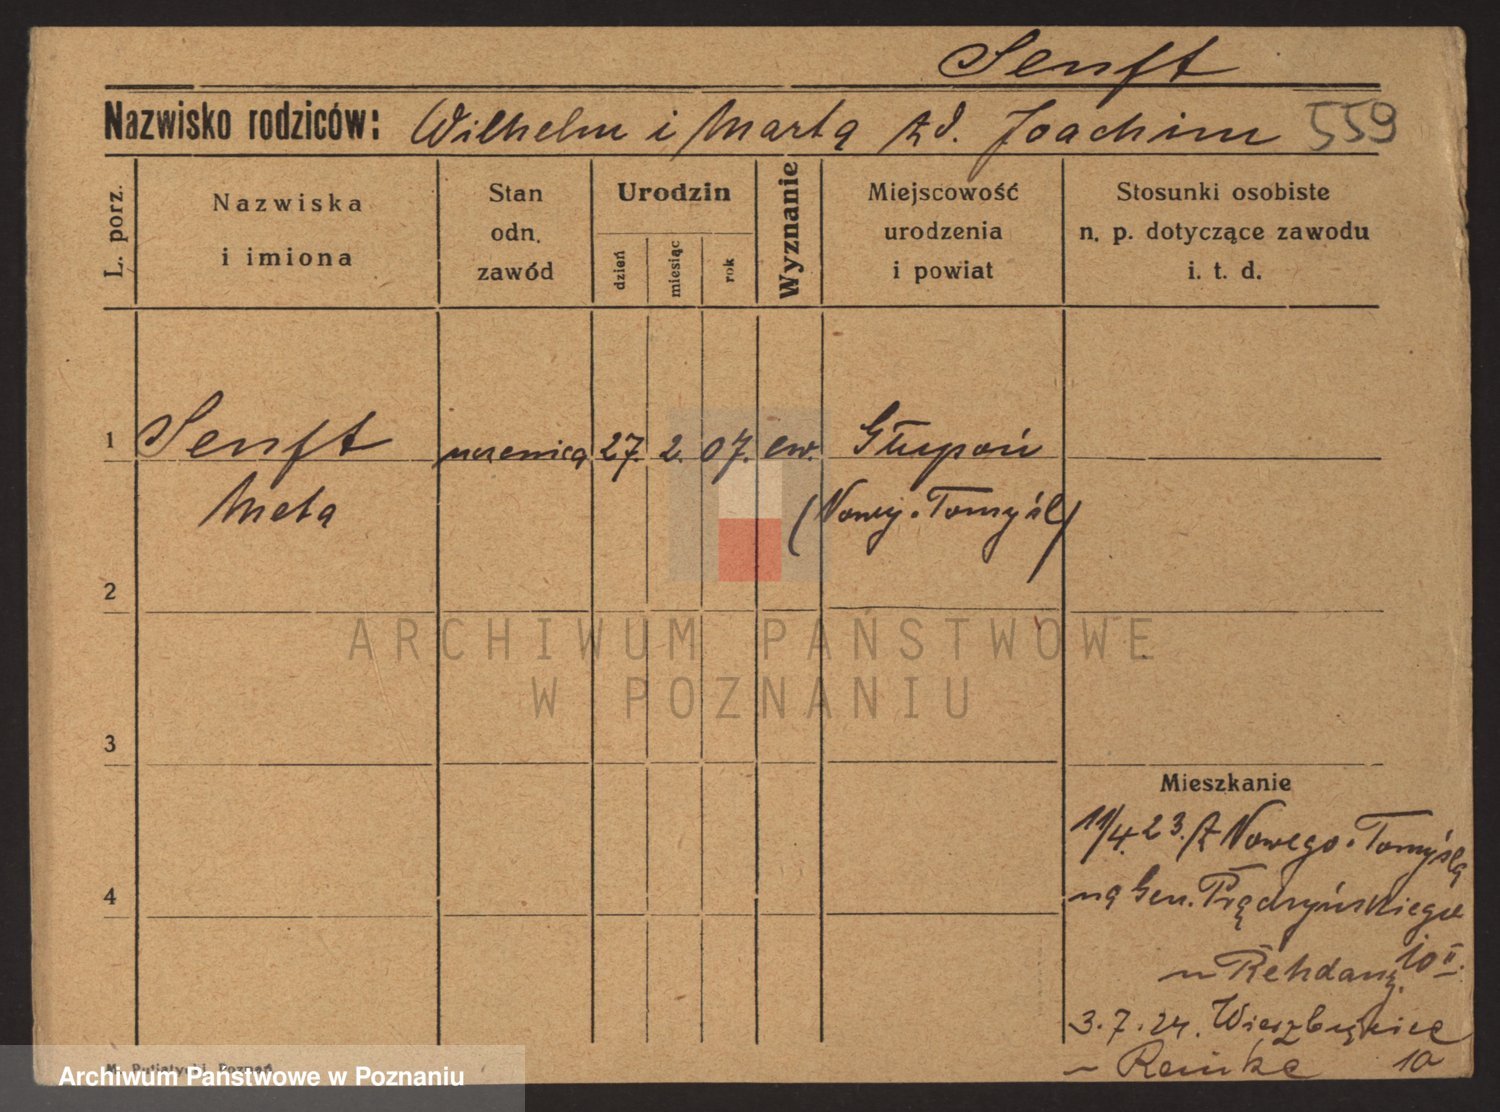 Senft
Nazwisko rodziców: Wilhelm i Marta zd. Joachim 559
L. porz.
Nazwiska
i imiona
Stan
odn.
zawód
Urodzin
dzień
miesiąc
rok
Wyznanie
Miejscowość
urodzenia
i powiat
Stosunki osobiste
n. p. dotyczące zawodu
i. t. d.
1 Senft uczenica 27. 2. 07. ew. Głupoń
Meta (Nowy-Tomyśl)
2
3
4
Mieszkanie
11/4. 23. Z Nowego-Tomyśla
na Gen. Prądzyńskiego
10 II.
u
3. 7. 24. Wierzbięcice
10
u Reinke
ARCHIWUM PAŃSTWOWE
W POZNANIU
M. Putiatycki, Poznań
Archiwum Państwowe w Poznaniu